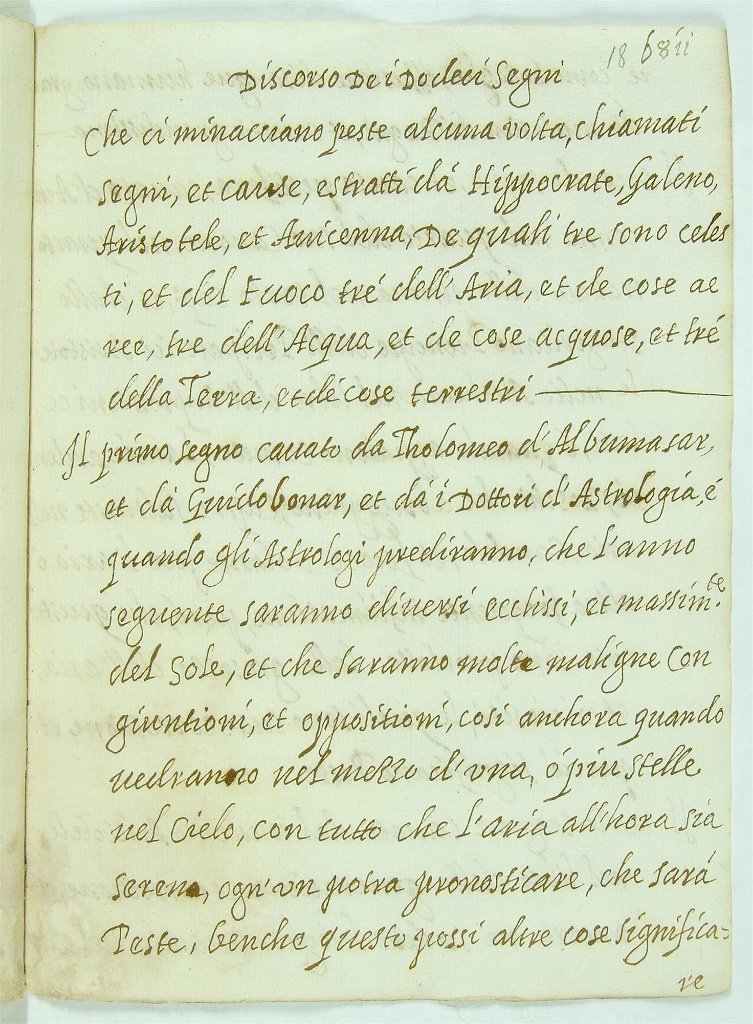 18
Discorso De i Dodeci Segni
Che ci minacciano peste alcuna volta, chiamati
segni, et cause, estratti dá Hippocrate, Galeno,
Aristotele, et Auicenna, De quali tre sono celes
ti, et del Fuoco tré dell'Aria, et de cose ae
ree, tre dell'Acqua, et de cose acquose, et tré
della Terra, et dé cose terrestri
Il primo segno cauato da Tholomeo d'Albumasar,
et dá Guidobonar, et dá i Dottori d'Astrologia, é
quando gli Astrologi prediranno, che l'anno
seguente saranno diuersi ecclissi, et massim.te
del Sole, et che saranno molte maligne con
giuntioni, et oppositioni, cosi anchora quando
uedranno nel mezzo d'una, ó piu stelle
nel Cielo, con tutto che l'aria all'hora sia
serena, ogn'un potra pronosticare, che sará
Peste, benche questo possi altre cose significa=
re